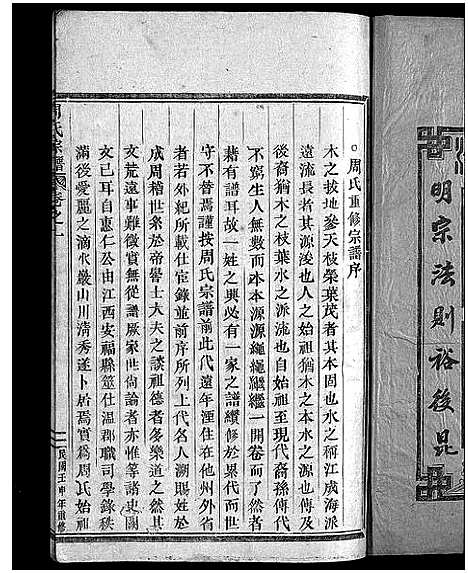 明宗法則裕後昆
周氏重修宗譜序
木之披地參天枝榮葉茂者其本固也水之稱江成海派
遠流長者其源浚也人之始祖猶木之本水之源也傳及
後裔猶木之枝葉水之派流也自始祖至現代裔孫傳代
不窮生人無數而本本源源繩繩繼繼一開卷而了然者
藉有譜耳故一姓之興必有一家之譜纘修於累代而世
守不替焉謹按周氏宗譜前此代遠年湮住在他州外省
者若外紀所載仕宦錄並前序所列上代名人溯賜姓於
成周稽世系於帝嚳士大夫之談祖德者多樂道之然其
文荒遠事難徵實無從譜厥家世尚論者亦惟等諸史闕
文已耳自惠仁公由江西安福縣筮仕温郡職司學錄秩
滿後愛麗之滴水巖山川清秀遂卜居焉實為周氏始祖
周氏宗譜 卷之一
民國壬申年重修